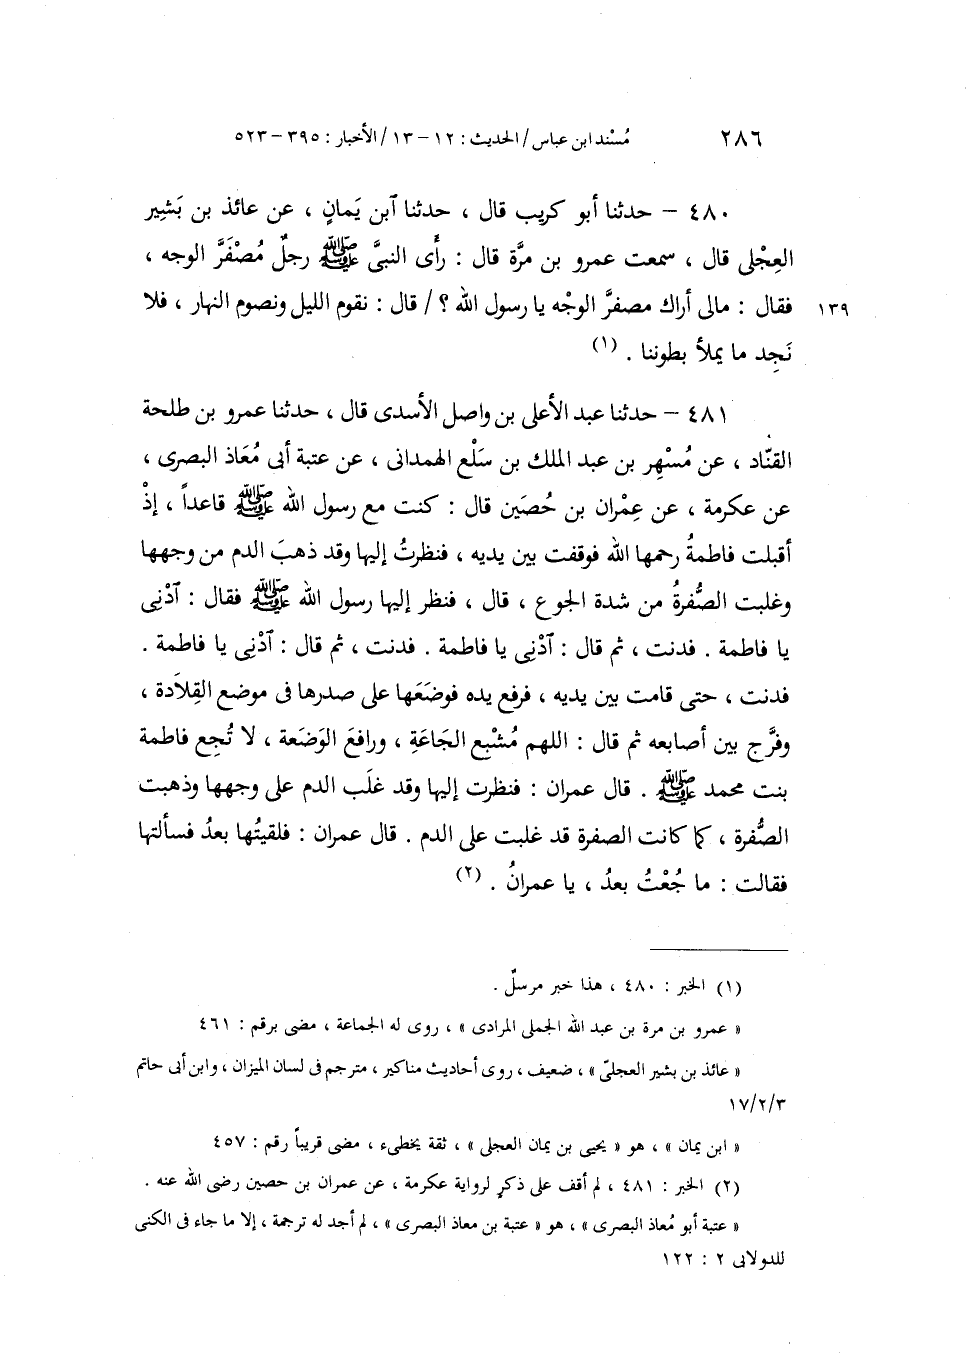 ٢٨٦ مُسْند ابن عباس / الحديث : ١٢ – ١٣ / الأخبار : ٣٩٥ – ٥٢٣
٤٨٠ – حدثنا أبو كريب قال ، حدثنا آبن يَمانٍ ، عن عائذ بن بَشِير
العِجْلى قال ، سمعت عمرو بن مرَّة قال : رأَى النبىَّ ﷺ رجلٌ مُصْفَرَّ الوجه ،
١٣٩ فقال : مالى أراك مصفرَّ الوجْه يا رسول الله ؟ / قال : نقوم الليل ونصوم النهار ، فلا
نَجِد ما يملأ بطوننا . (١)
٤٨١ – حدثنا عبد الأعلى بن واصل الأسدى قال ، حدثنا عمرو بن طلحة
القنّاد ، عن مُسْهِر بن عبد الملك بن سَلْع الهمدانى ، عن عتبة أبى مُعَاذ البصرى ،
عن عكرمة ، عن عِمْران بن حُصَين قال : كنت مع رسول الله ﷺ قاعداً ، إذْ
أقبلت فاطمةُ رحمها الله فوقفت بين يديه ، فنظرتُ إليها وقد ذهبَ الدم من وجهها
وغلبت الصُّفرةُ من شدة الجوع ، قال ، فنظر إليها رسول الله ﷺ فقال : آدْنِى
يا فاطمة . فدنت ، ثم قال : آدْنِى يا فاطمة . فدنت ، ثم قال : آدْنِى يا فاطمة .
فدنت ، حتى قامت بين يديه ، فرفع يده فوضَعَها على صدرها فى موضع القِلاَدة ،
وفرَّج بين أصابعه ثم قال : اللهم مُشْبِع الجَاعَةِ ، ورافعَ الوَضَعة ، لا تُجِع فاطمة
بنت محمد ﷺ . قال عمران : فنظرت إليها وقد غلَب الدم على وجهها وذهبت
الصُّفرة ، كما كانت الصفرة قد غلبت على الدم . قال عمران : فلقيتُها بعدُ فسألتها
فقالت : ما جُعْتُ بعدُ ، يا عمرانُ . (٢)
(١) الخبر : ٤٨٠ ، هذا خبر مرسلٌ .
« عمرو بن مرة بن عبد الله الجملى المرادى » ، روى له الجماعة ، مضى برقم : ٤٦١
« عائذ بن بشير العجلىّ » ، ضعيف ، روى أحاديث مناكير ، مترجم فى لسان الميزان ، وابن أبى حاتم
١٧/٢/٣
« ابن يمان » ، هو « يحيى بن يمان العجلى » ، ثقة يخطىء ، مضى قريباً رقم : ٤٥٧
(٢) الخبر : ٤٨١ ، لم أقف على ذكرٍ لرواية عكرمة ، عن عمران بن حصين رضى الله عنه .
« عتبة أبو مُعاذ البصرى » ، هو « عتبة بن معاذ البصرى » ، لم أجد له ترجمة ، إلا ما جاء فى الكنى
للدولابى ٢ : ١٢٢